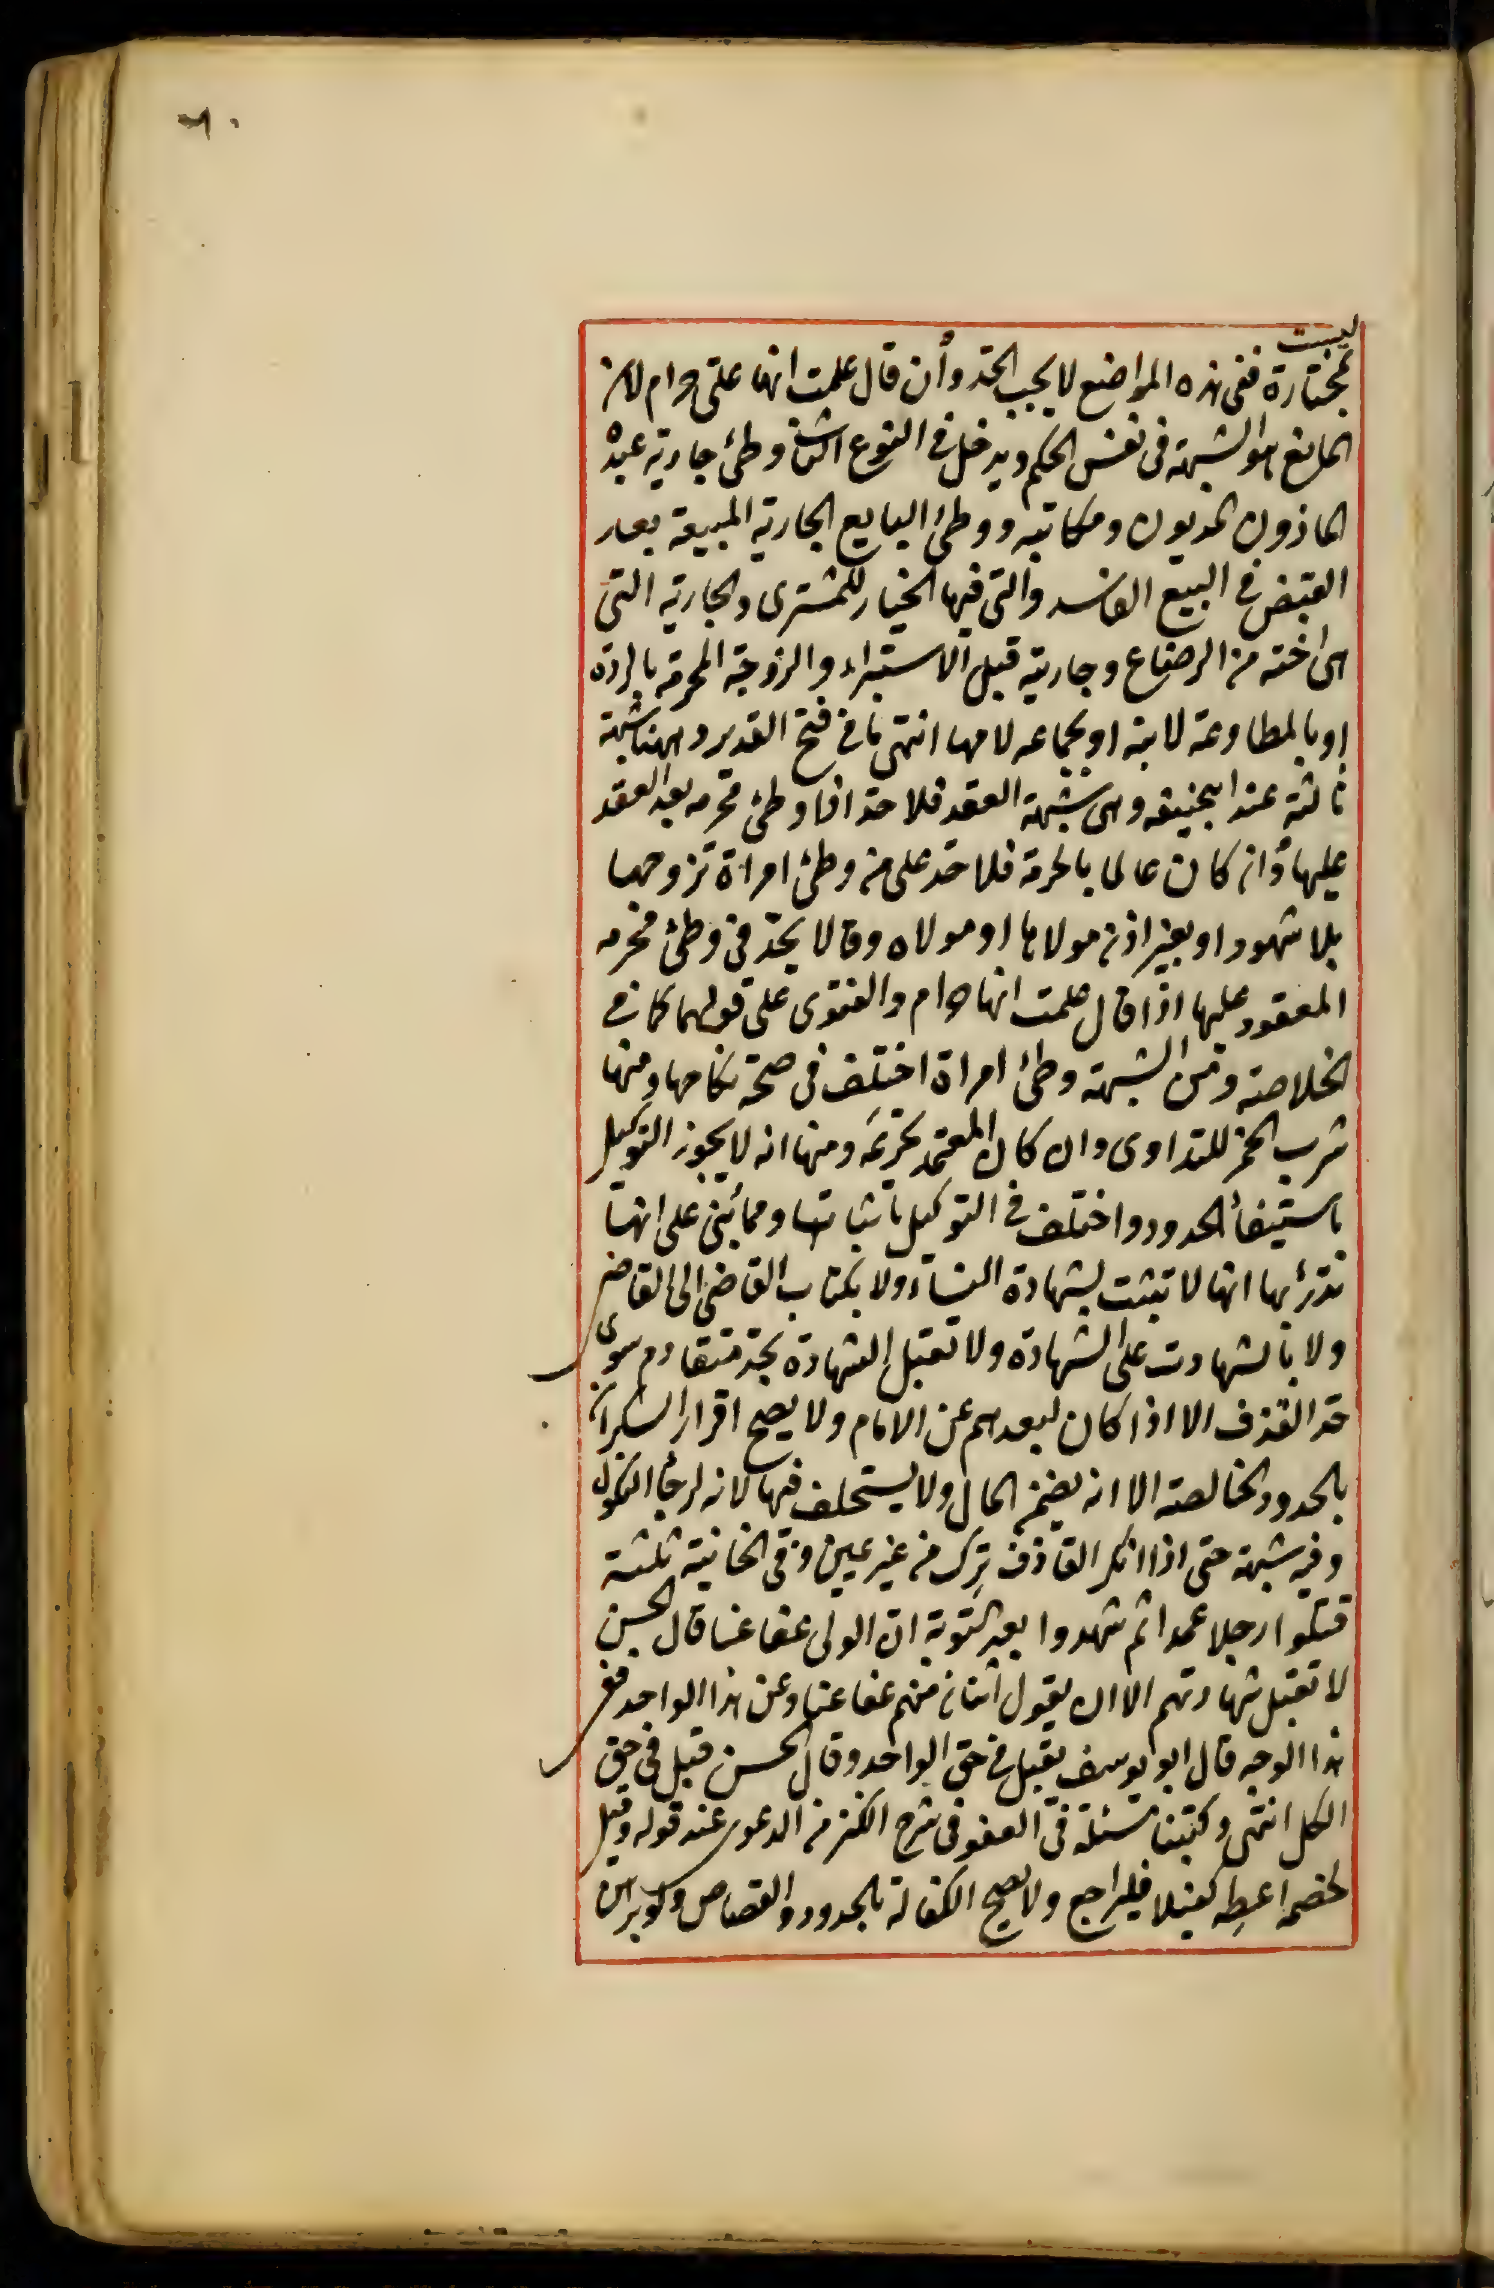 ٦٠
ليست
بمختارة ففى هذه المواضع لا يجب الحد وأن قال علمت انها على حرام لان
المانع هو الشبهة فى نفس الحكم ويدخل فى النوع الثانى وطئ جارية عبده
الماذون المديون ومكاتبه ووطئ البايع الجارية المبيعة بعد
القبض فى البيع الفاسد والتى فيها الخيار للمشترى والجارية التى
هى اخته من الرضاع وجارية قبل الاستبراء والزوجة المحرمة بالردة
او بالمطاوعة لابنه او بجماعه لامها انتهى ما فى فتح القدير وههنا شبهة
ثالثة عند ابيحنيفه وهى شبهة العقد فلا حد اذا وطئ محرمه بعد العقد
عليها وان كان عالما بالحرمة فلا حد على من وطئ امراة تزوجها
بلا شهود او بغير اذن مولاها او مولاه وقالا يحد فى وطئ محرمه
المعقود عليها اذا قال علمت انها حرام والفتوى على قولهما كما فى
الخلاصة ومن الشبهة وطئ امراة اختلف فى صحة نكاحها ومنها
شرب الخمر للتداوى وان كان المعتمد تحريمه ومنها انه لا يجوز التوكيل
باستيفأ الحدود واختلف فى التوكيل باثباتها ومما يبنى على انها
تدرئ بها انها لا تثبت بشهادة النسآء ولا بكتاب القاضى الى القاضى
ولا بالشهادت على الشهادة ولا تقبل الشهادة بحد متقادم سوى
حد القذف الا اذا كان لبعدهم عن الامام ولا يصح اقرار السكران
بالحدود الخالصة الا انه يضمن المال ولا يستحلف فيها لانه لرجأ النكول
وفيه شبهة حتى اذا انكر القاذف ترك من غير يمين وفى الخانية ثلثة
قتلوا رجلا عمدا ثم شهدوا بعد التوبة ان الولى عفا عنا قال الحسن
لا تقبل شهادتهم الا ان يقول اثنان منهم عفا عنا وعن هذا الواحد ففى
هذا الوجه قال ابو يوسف يقبل فى حق الواحد وقال الحسن قبل فى حق
الكل انتهى وكتبنا مسئلة فى العفو فى شرح الكنز من الدعوى عند قوله وقيل
لخصمه اعطه كفيلا فليراجع ولا يصح الكفالة بالحدود والقصاص ولو برهن